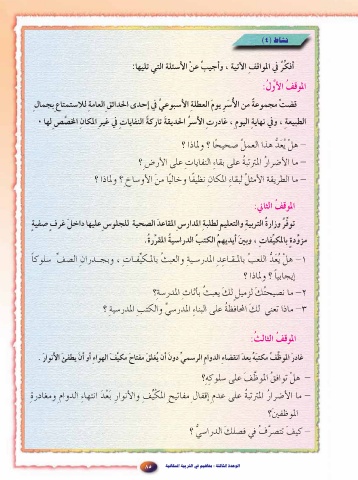 نشاط (٤)
أفكّرُ في المواقفِ الآتية ، وأجيبُ عنِ الأسئلة التي تليها:
الموقفُ الأوّلُ:
قضتْ مجموعةٌ من الأُسَرِ يومَ العطلةِ الأسبوعيِّ في إحدى الحدائق العامة للاستمتاعِ بجمالِ
الطبيعة ، وفي نهايةِ اليومِ ، غادرتِ الأسرُ الحديقةَ تاركةً النفاياتِ في غيرِ المكانِ المخصَّصِ لها .
– هلْ يُعَدُّ هذا العملُ صحيحًا ؟ ولماذا ؟
– ما الأضرارُ المترتبةُ على بقاءِ النفاياتِ على الأرضِ ؟
– ما الطريقة الأمثلُ لبقاءِ المكانِ نظيفًا وخاليًا منَ الأوساخِ ؟ ولماذا ؟
الموقفُ الثاني:
توفّرُ وزارةُ التربيةِ والتعليمِ لطلبةِ المدارسِ المقاعدَ الصحيةَ للجلوسِ عليها داخلَ غرفٍ صفيةٍ
مزوّدةٍ بالمكيّفاتِ ، وبينَ أيديهمُ الكتبُ الدراسيةُ المقرّرةُ.
١– هلْ يُعَدُّ اللعبُ بالمقاعدِ المدرسيةِ والعبثُ بالمكيّفاتِ ، وبجدرانِ الصفِّ سلوكاً
إيجابياً ؟ ولماذا ؟
٢– ما نصيحتُكَ لزميلٍ لكَ يعبثُ بأثاثِ المدرسة؟
٣– ماذا تعني لكَ المحافظةُ على البناءِ المدرسيِّ والكتبِ المدرسيةِ ؟
الموقفُ الثالثُ:
غادرَ الموظّفُ مكتبَهُ بعدَ انقضاءِ الدوامِ الرسميِّ دونَ أن يُغلقَ مفتاحَ مكيّفِ الهواءِ أو أن يطفئَ الأنوارَ .
– هلْ توافقُ الموظّفَ على سلوكِهِ؟
– ما الأضرارُ المترتبةُ على عدمِ إقفالِ مفاتيحِ المكيّفِ والأنوارِ بَعْدَ انتهاءِ الدوامِ ومغادرةِ
الموظفينَ؟
– كيفَ تتصرّفُ في فصلكَ الدراسيِّ ؟
الوحدة الثالثة - مفاهيم في التربية السكانية
٨٥